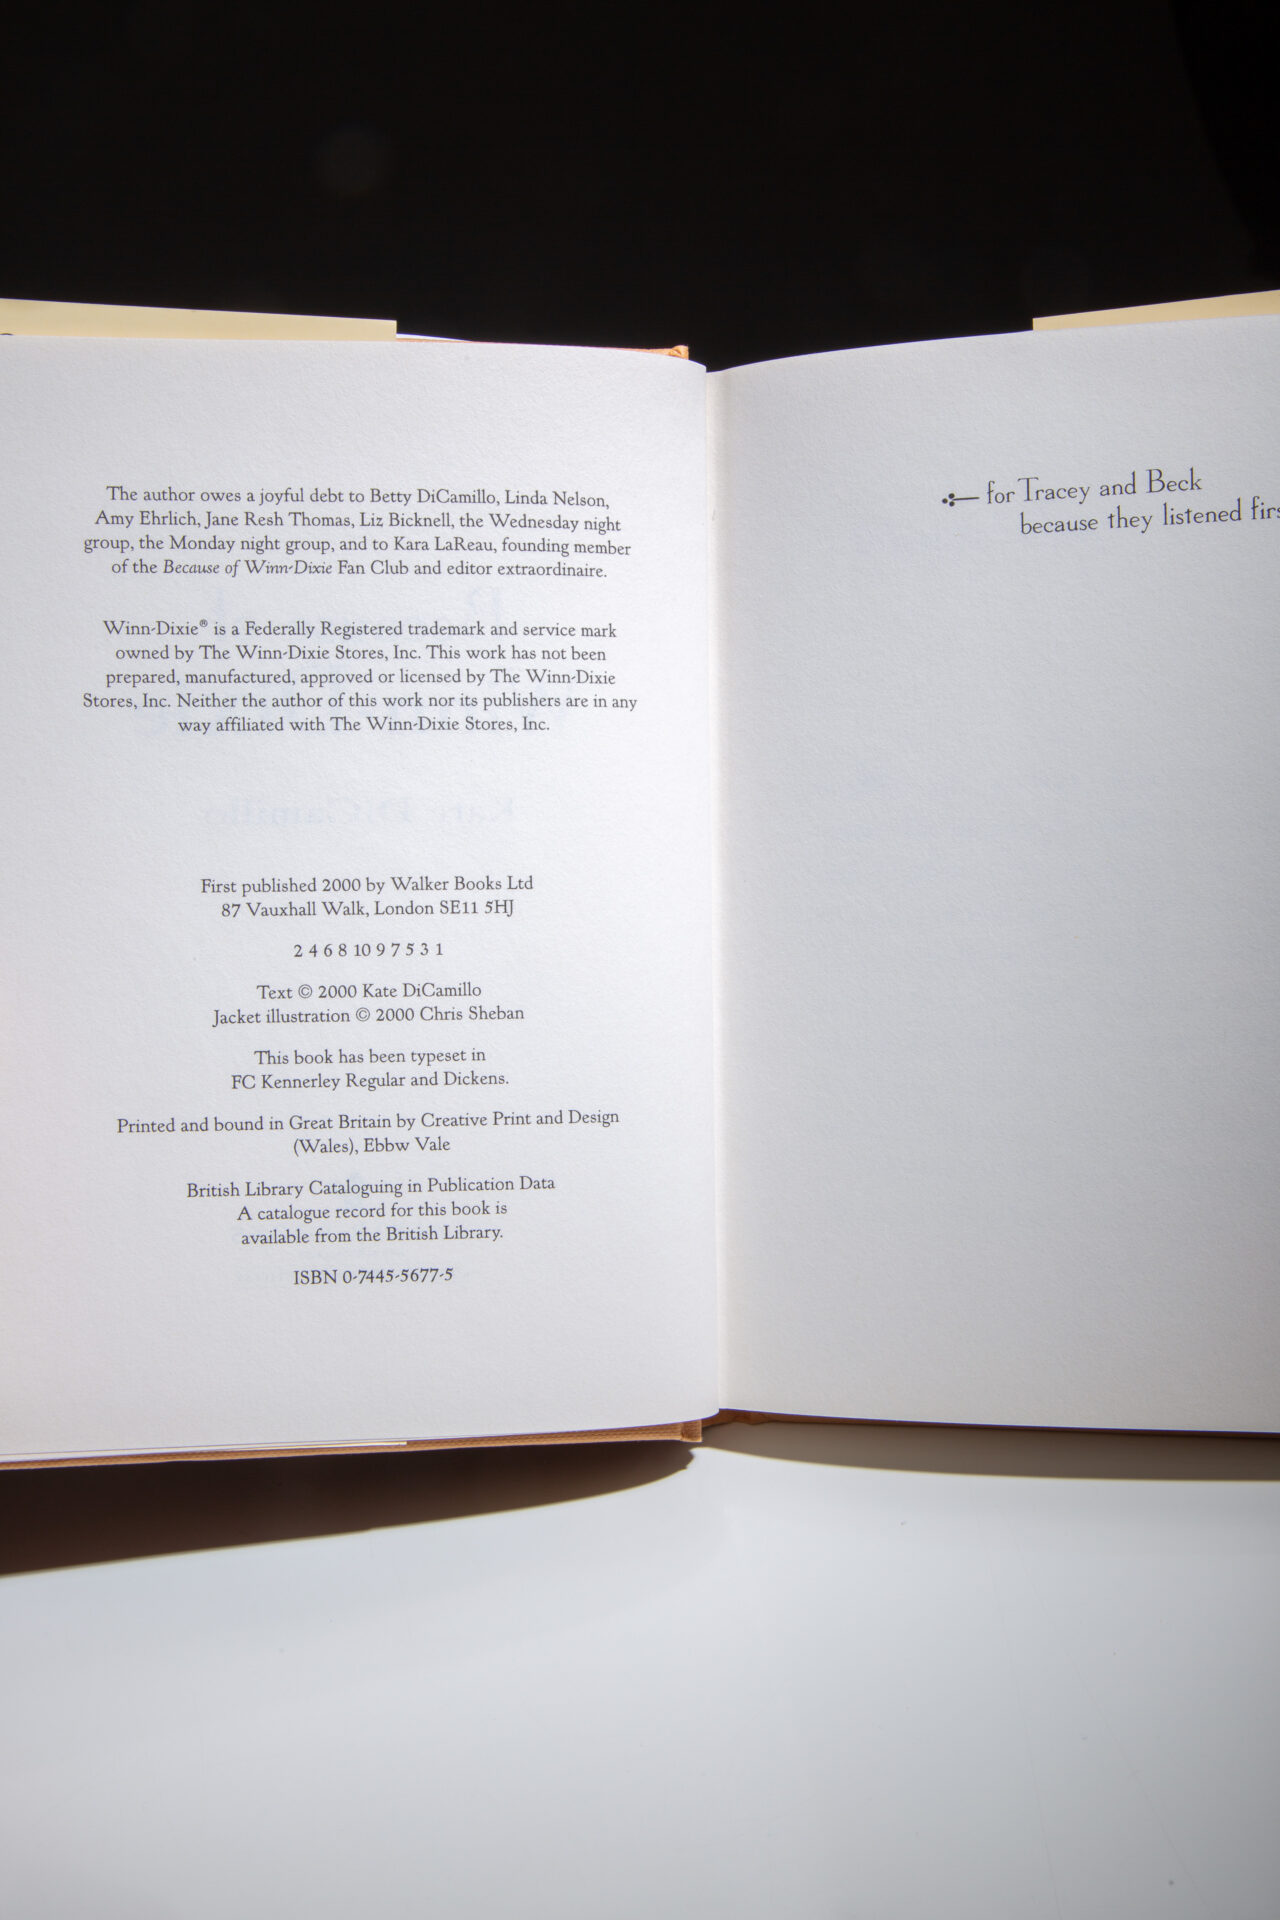 The author owes a joyful debt to Betty DiCamillo, Linda Nelson,
Amy Ehrlich, Jane Resh Thomas, Liz Bicknell, the Wednesday night
group, the Monday night group, and to Kara LaReau, founding member
of the Because of Winn-Dixie Fan Club and editor extraordinaire.
Winn-Dixie® is a Federally Registered trademark and service mark
owned by The Winn-Dixie Stores, Inc. This work has not been
prepared, manufactured, approved or licensed by The Winn-Dixie
Stores, Inc. Neither the author of this work nor its publishers are in any
way affiliated with The Winn-Dixie Stores, Inc.
First published 2000 by Walker Books Ltd
87 Vauxhall Walk, London SE11 5HJ
2 4 6 8 10 9 7 5 3 1
Text © 2000 Kate DiCamillo
Jacket illustration © 2000 Chris Sheban
This book has been typeset in
FC Kennerley Regular and Dickens.
Printed and bound in Great Britain by Creative Print and Design
(Wales), Ebbw Vale
British Library Cataloguing in Publication Data
A catalogue record for this book is
available from the British Library.
ISBN 0-7445-5677-5
for Tracey and Beck
because they listened